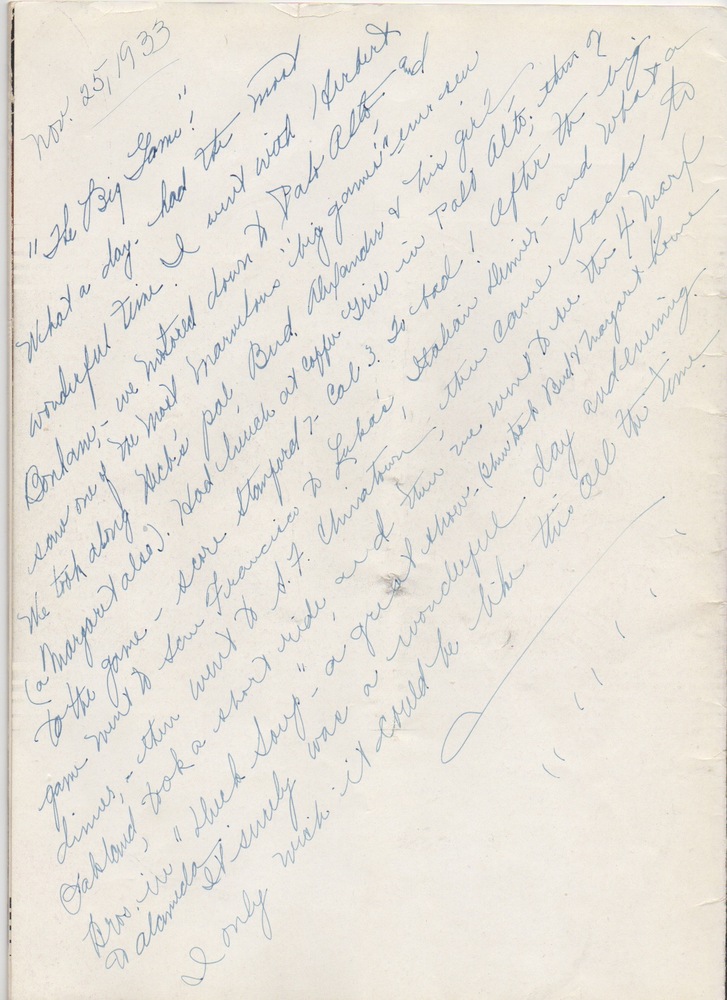 Nov. 25, 1933
"The Big Game!"
What a day - had the most
wonderful time. I went with Herbert
Bonham - we motored down to Palo Alto and
saw one of the most marvelous "big games" ever seen
We took along Herb's pal Bud Alexander & his girl
(a Margaret also). Had lunch at Copper Grill in Palo Alto, then
to the game - score Stanford 7 - Cal 3. To bad! After the big
game went to San Francisco to Lucka's, Italian Dinner - and what a
dinner, - then went to S.F. Chinatown, then came back to
Oakland, took a short ride, and then we went to see the 4 Marx
Bros. in "Duck Soup" - a great show. Bud & Margaret home
to Alameda.
It surely was a wonderful day and evening.
I only wish it could be like this all the time.